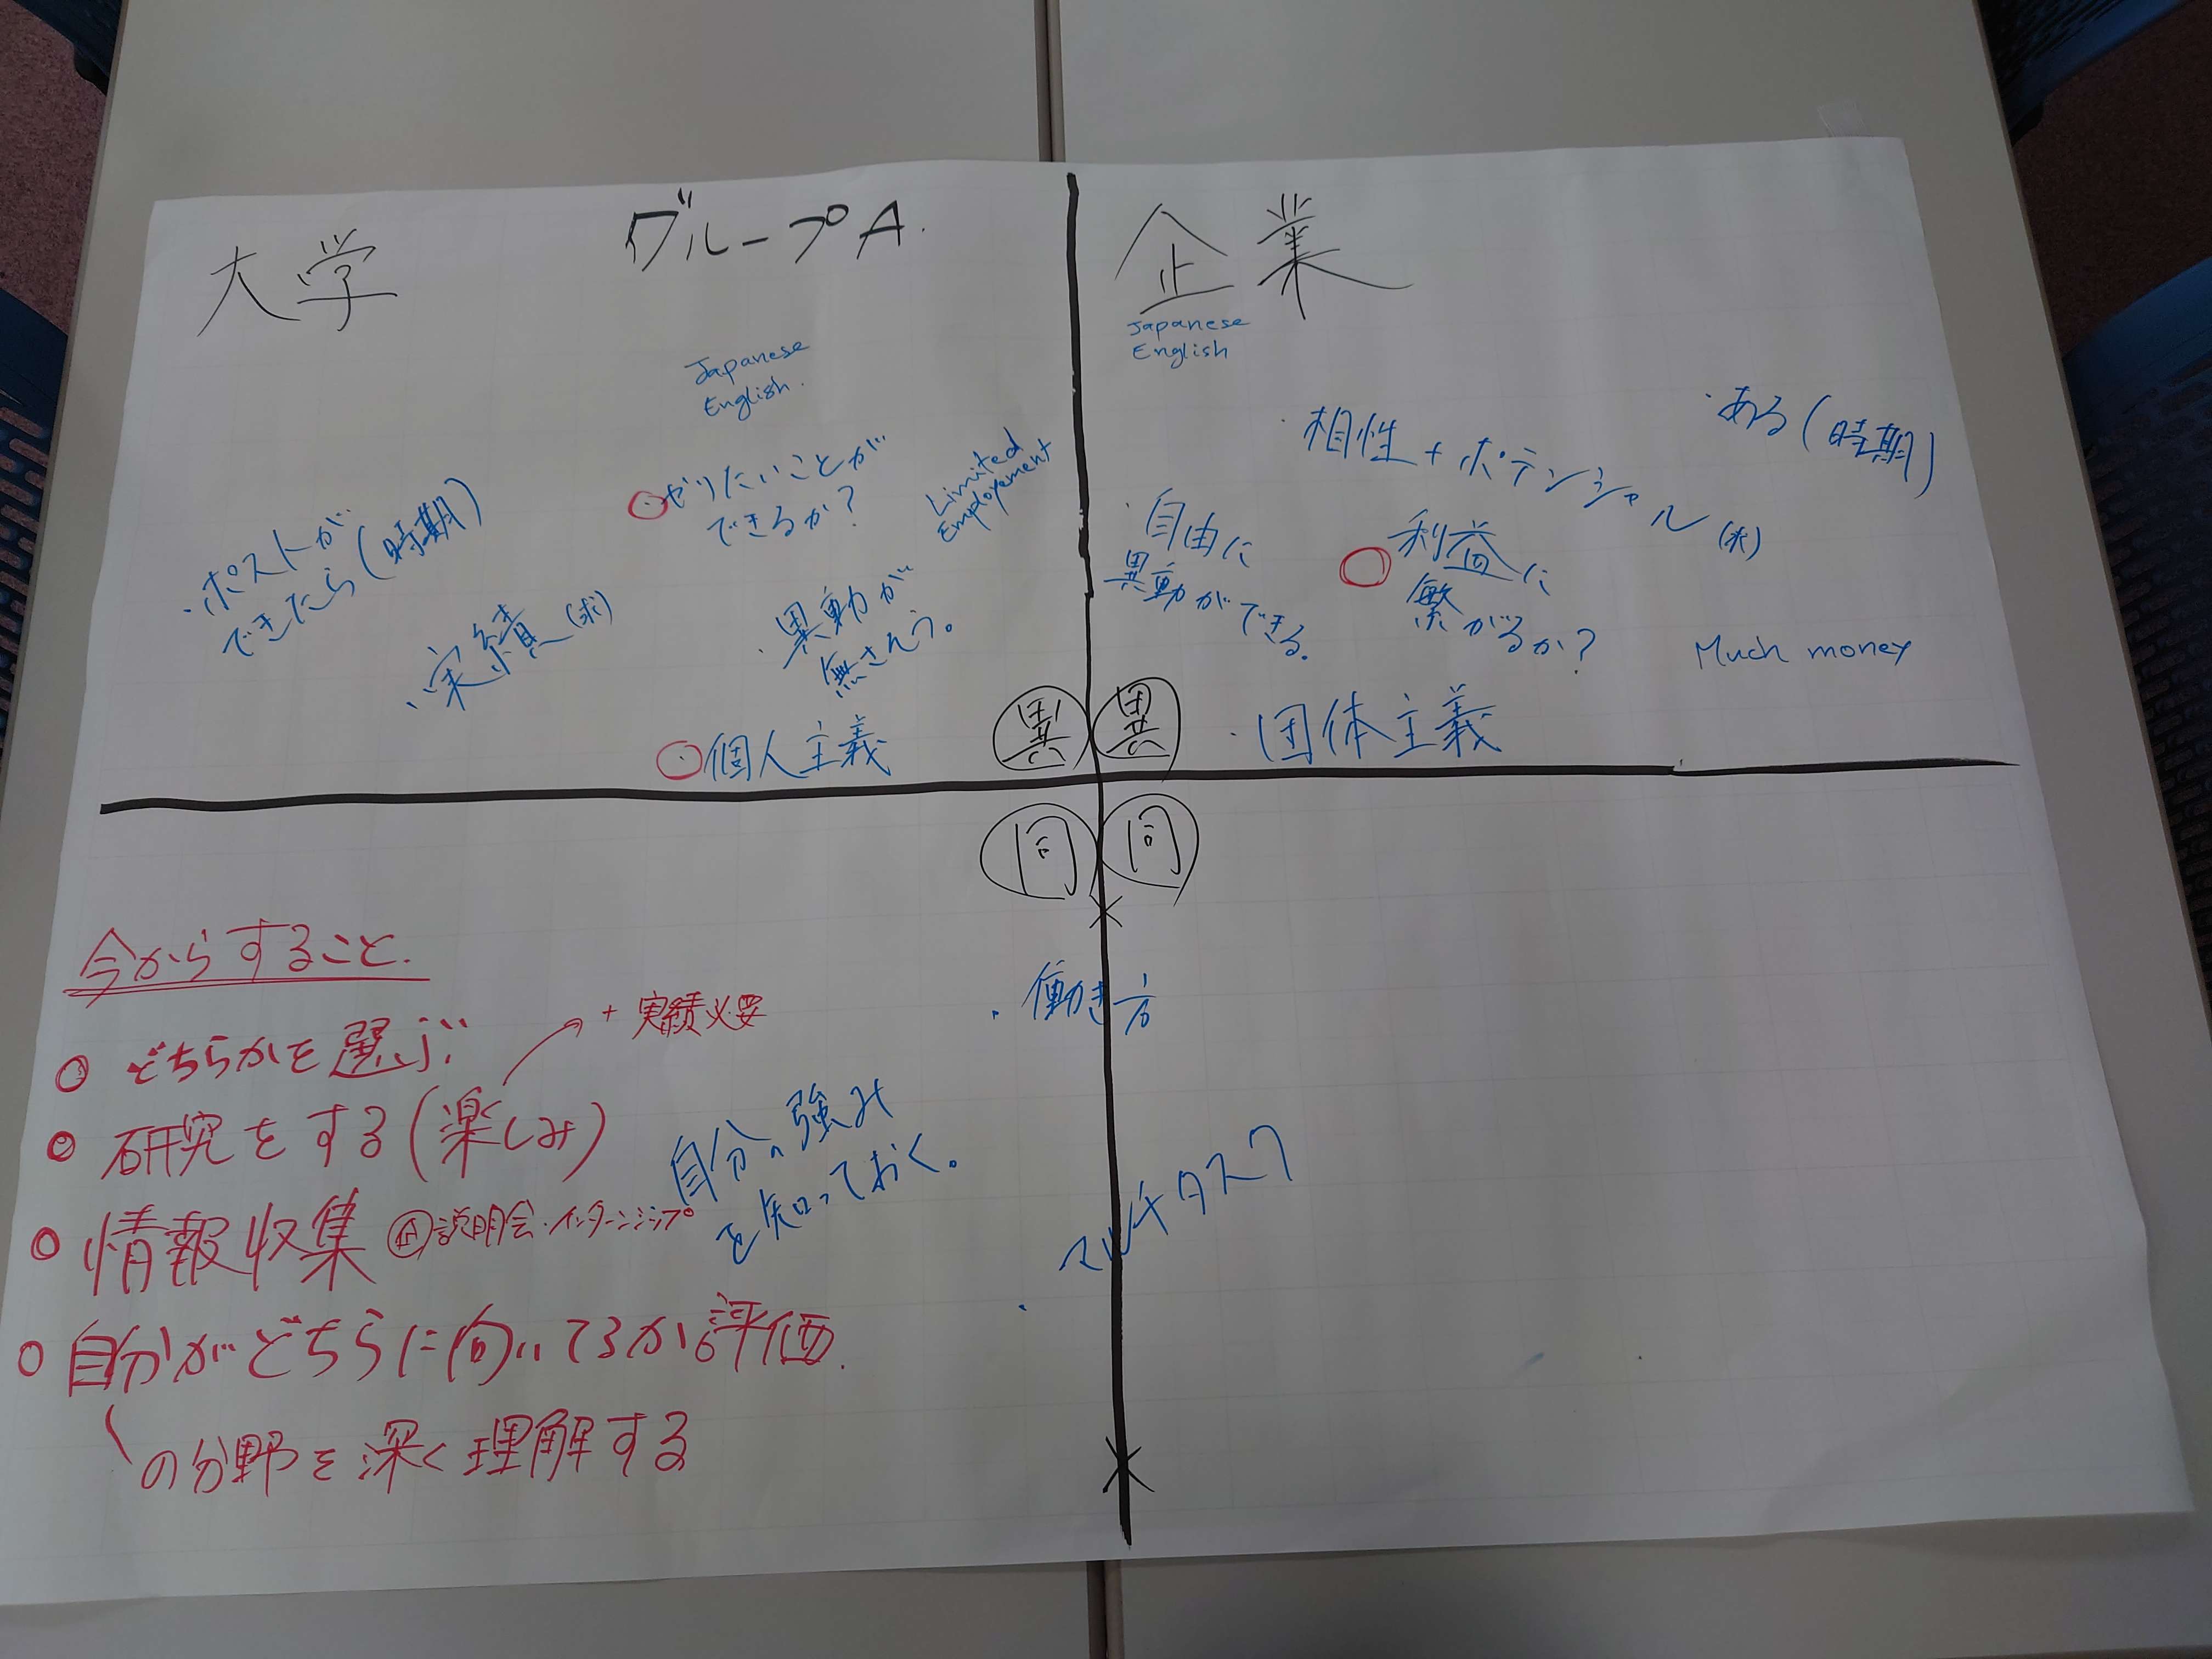 大学
グループA.
Japanese
English.
・ポストが
できたら(時期)
・やりたいことが
できるか?
Limited
Employement
・実績(求)
・異動が
無さそう。
・個人主義
異
企業
Japanese
English
・相性+ポテンシャル(求)
・ある(時期)
・自由に
異動ができる.
利益に
繋がるか?
Much money
・団体主義
異
同
同
・働き方
マルチタスク
今からすること.
どちらかを選ぶ
+実績必要
研究をする(楽しみ)
自分の強み
を知っておく。
情報収集 企説明会・インターンシップ
自分がどちらに向いてるか評価.
の分野を深く理解する